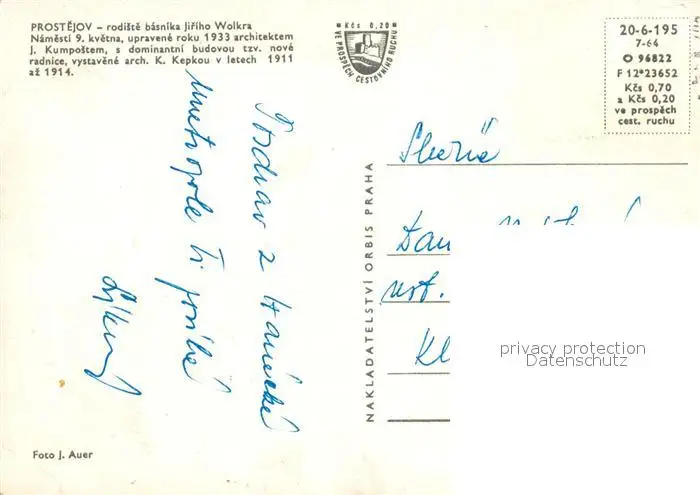 PROSTĚJOV – rodiště básníka Jiřího Wolkra
Náměstí 9. května, upravené roku 1933 architektem
J. Kumpoštem, s dominantní budovou tzv. nové
radnice, vystavěné arch. K. Kepkou v letech 1911
až 1914.
Kčs 0,20
VE PROSPĚCH CESTOVNÍHO RUCHU
20-6-195
7-64
O 96822
F 12*23652
Kčs 0,70
a Kčs 0,20
ve prospěch
cest. ruchu
Pozdrav z hanácké
metropole Ti posílá
NAKLADATELSTVÍ ORBIS PRAHA
Kl
privacy protection
Datenschutz
Foto J. Auer